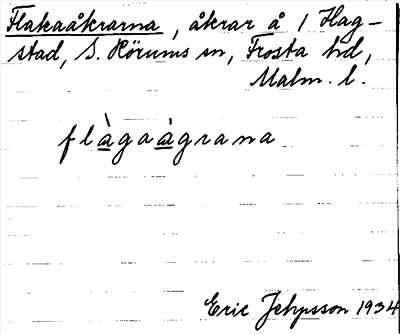 Flakaåkrarna, åkrar å 1 Hag-
stad, S. Hörums sn, Frosta hd,
Malm. l.
flàgaàgrana
Eric Jepsson 1934